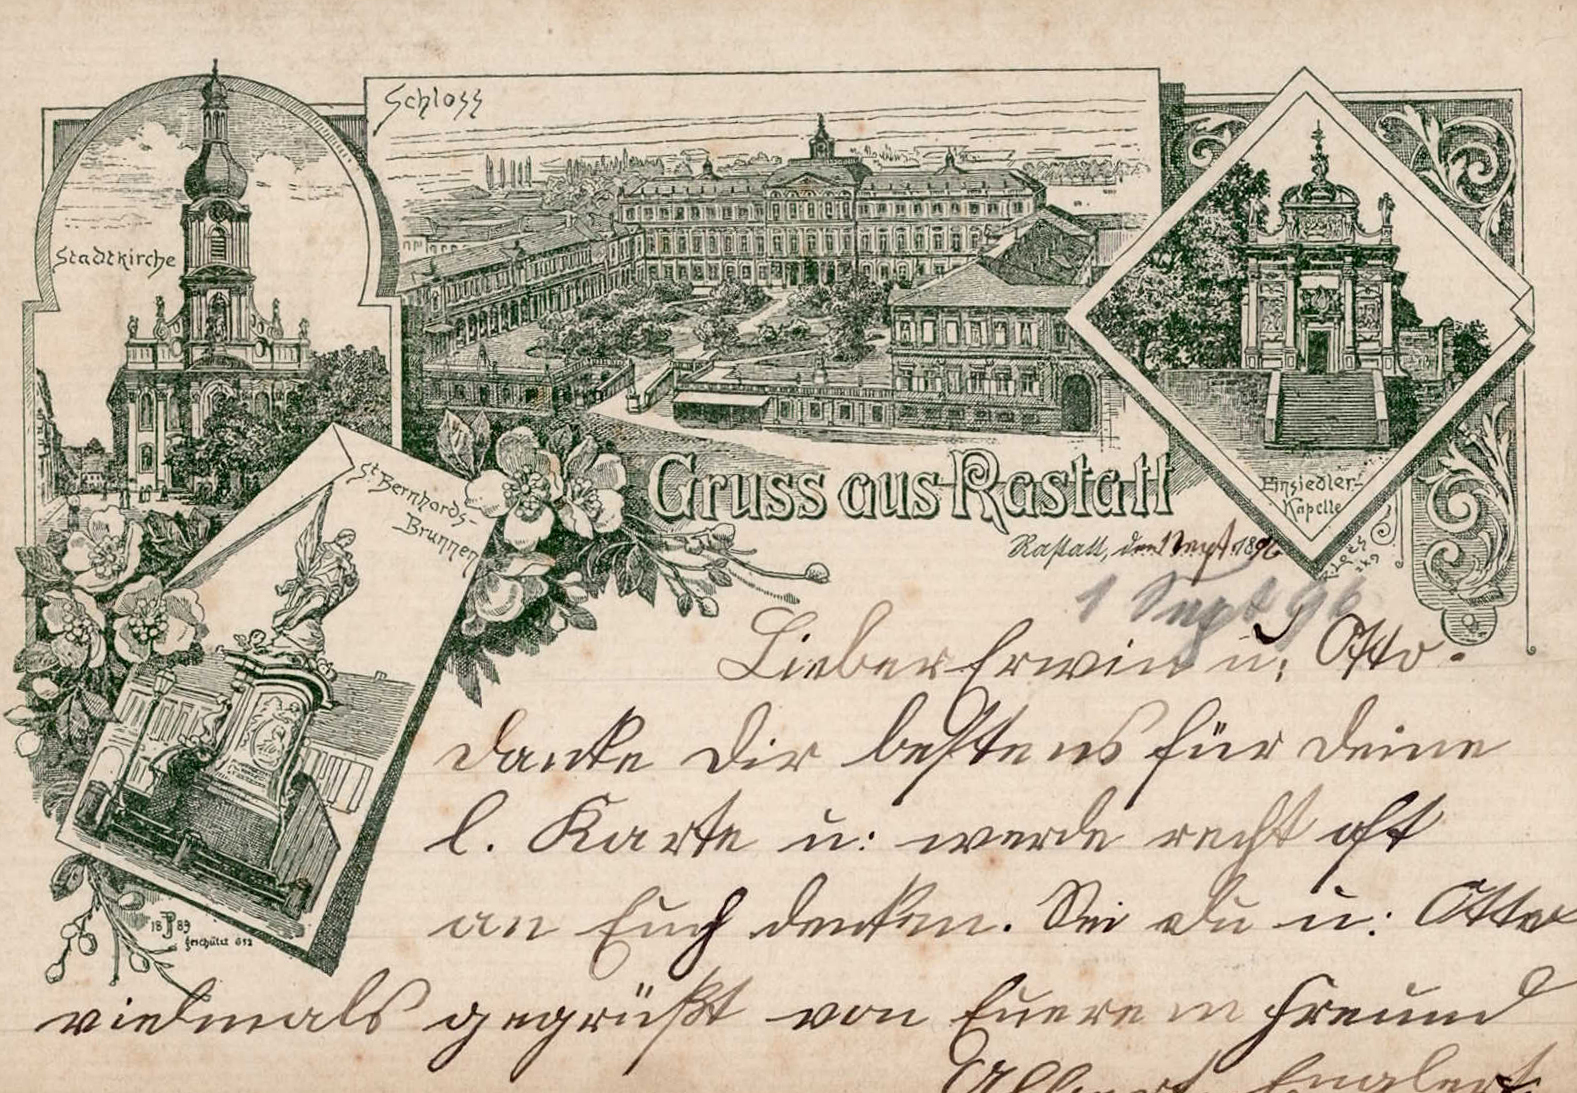 Schloss
Stadtkirche
St Bernhards-
Brunnen
Einsiedler-
Kapelle
Gruss aus Rastatt
Rastatt, den 1 Sept. 1896
1 Sept 96
Lieber Erwin u. Otto.
danke Dir bestens für deine
l. Karte u: werde recht oft
an Euch denken. Sei Du u: Otto
vielmals gegrüßt von Euerem Freund
Englert.
1889
Geschützt 612